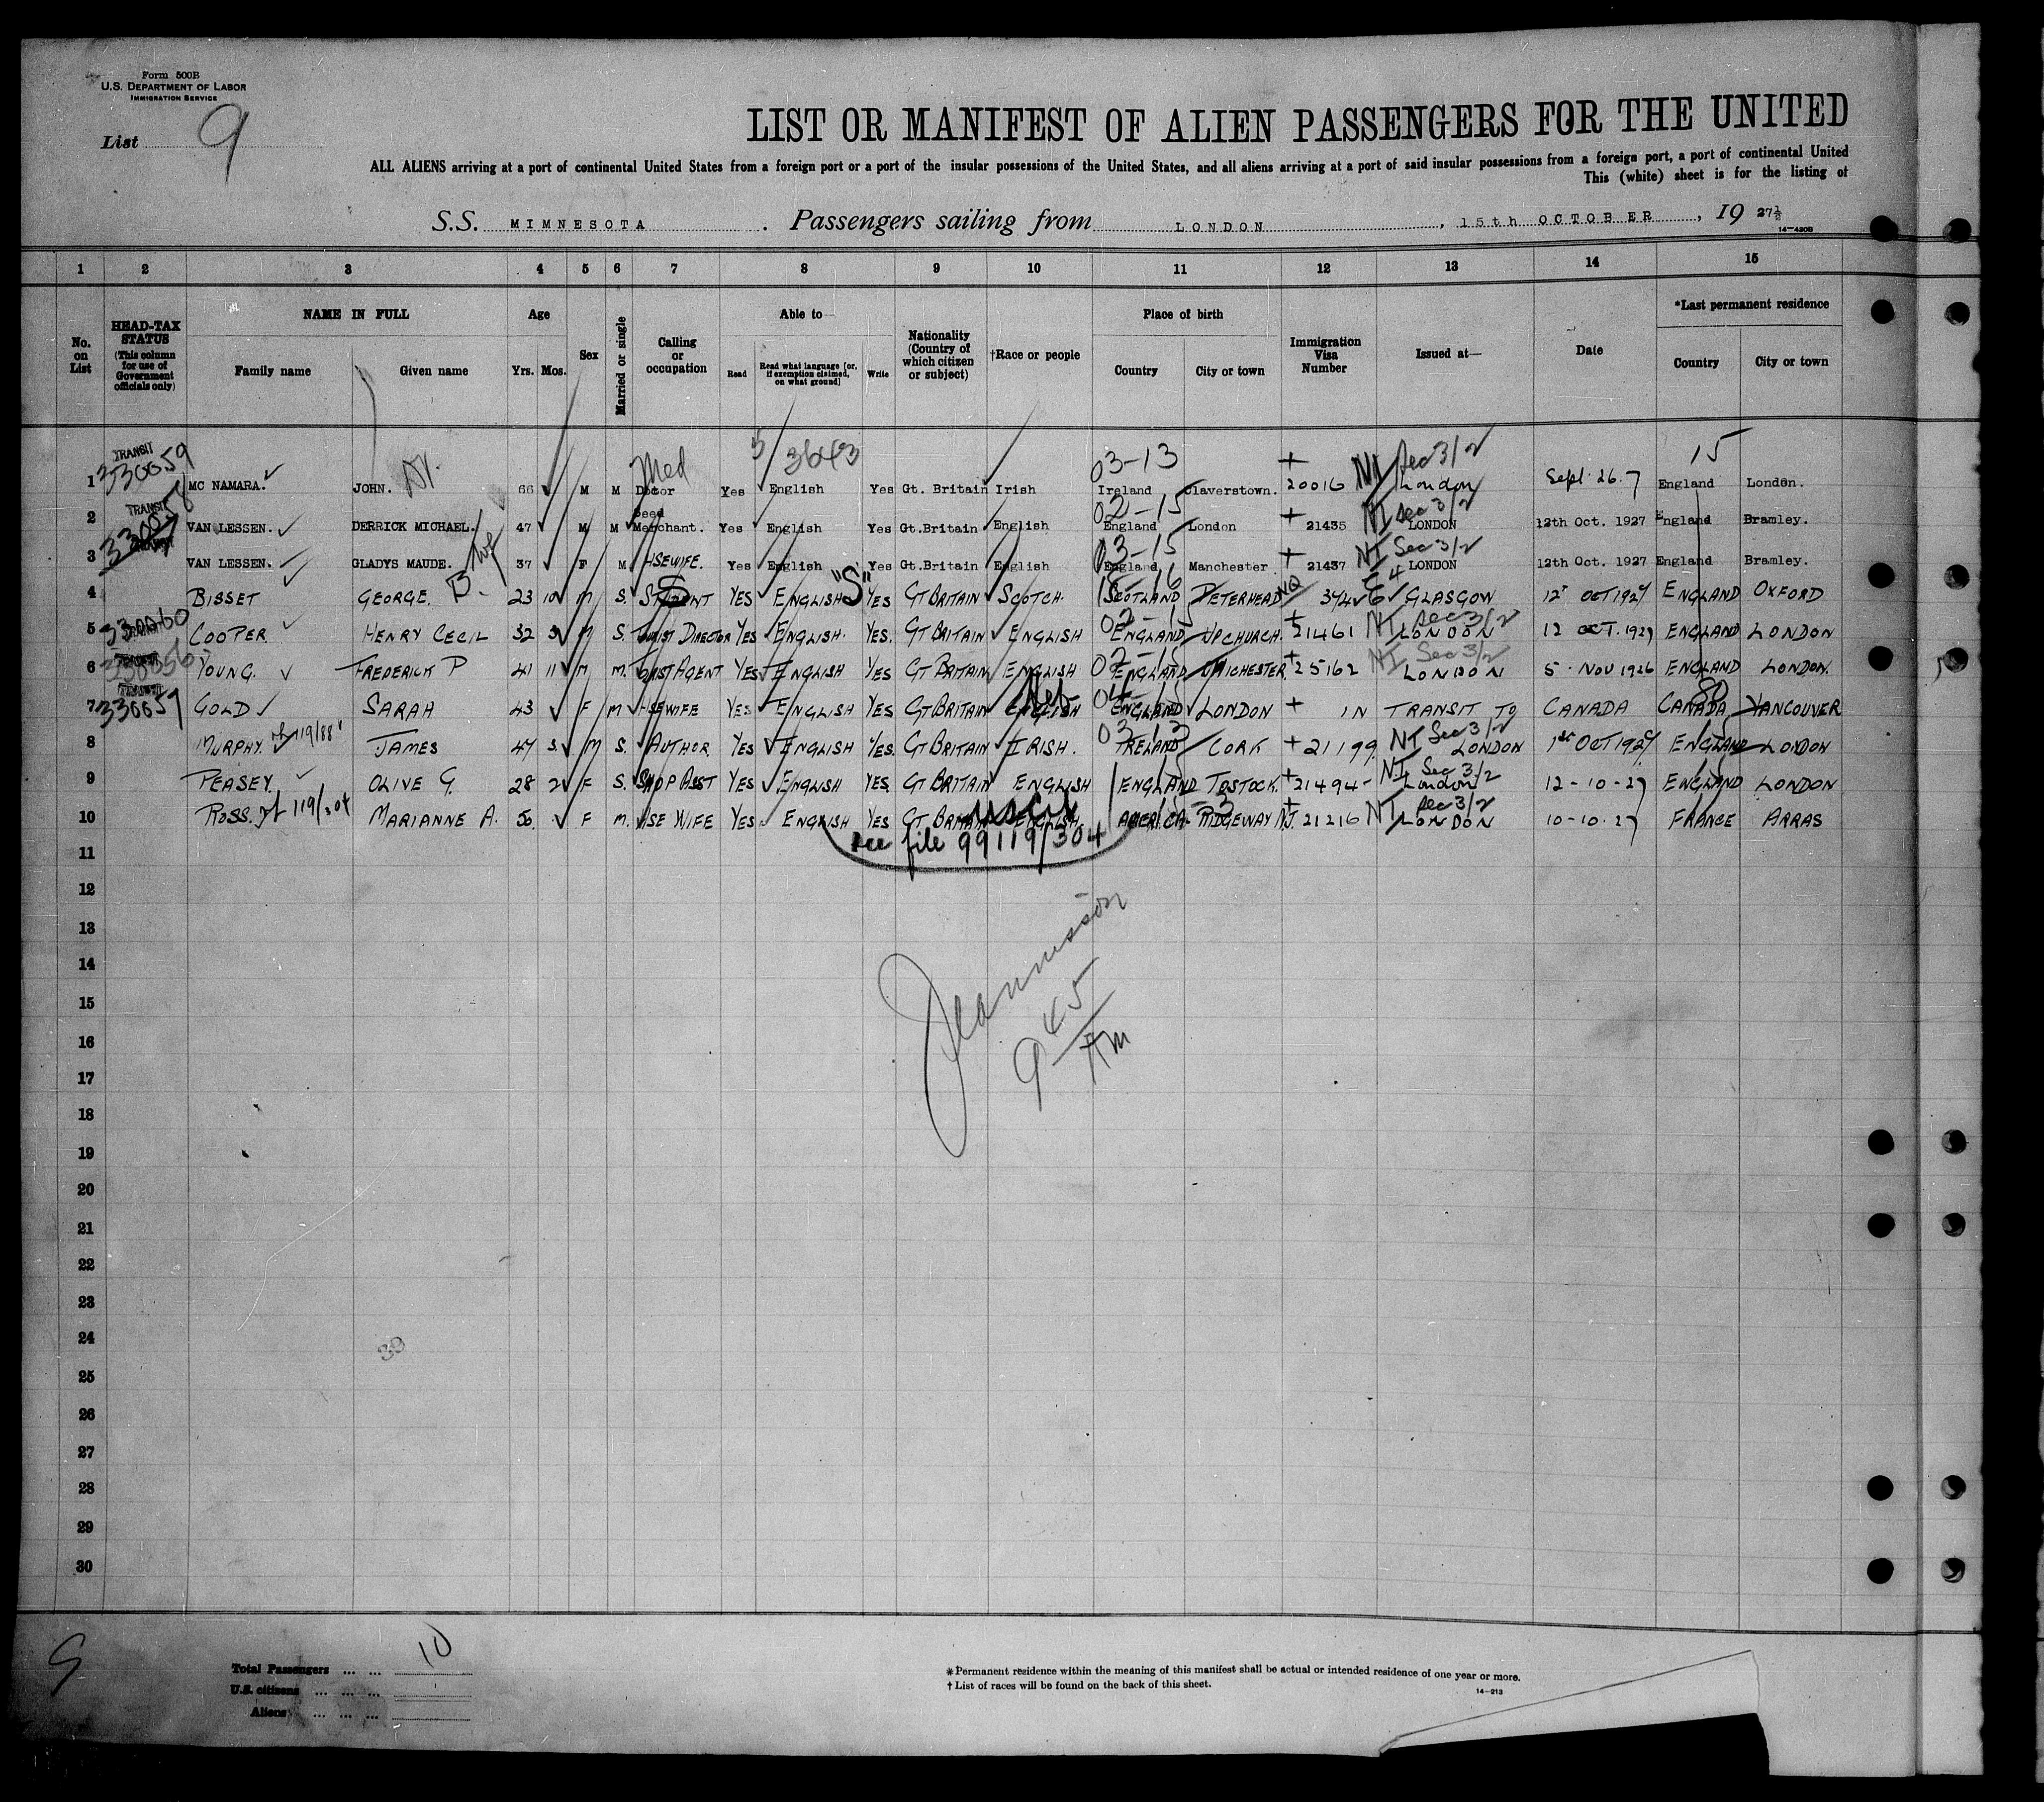 Form 500B
U.S. DEPARTMENT OF LABOR
IMMIGRATION SERVICE
List 9
LIST OR MANIFEST OF ALIEN PASSENGERS FOR THE UNITED
ALL ALIENS arriving at a port of continental United States from a foreign port or a port of the insular possessions of the United States, and all aliens arriving at a port of said insular possessions from a foreign port, a port of continental United
This (white) sheet is for the listing of
S.S. MIMNESOTA. Passengers sailing from LONDON, 15th OCTOBER, 19 27½
14-430B
1 2 3 4 5 6 7 8 9 10 11 12 13 14 15
No. on List
HEAD-TAX STATUS (This column for use of Government officials only)
NAME IN FULL Family name Given name
Age Yrs. Mos.
Sex
Married or single
Calling or occupation
Able to— Read Read what language [or, if exemption claimed, on what ground] Write
Nationality (Country of which citizen or subject)
†Race or people
Place of birth Country City or town
Immigration Visa Number
Issued at—
Date
*Last permanent residence Country City or town
TRANSIT 330059 5/3643 Med 03-13 NI Sec 3/2 15
1 MC NAMARA. JOHN. Dr. 66 M M Doctor Yes English Yes Gt. Britain Irish Ireland Claverstown. 20016 London Sept 26.7 England London.
TRANSIT 330058 Seed 02-15 NI Sec 3/2
2 VAN LESSEN. DERRICK MICHAEL. 47 M M Merchant. Yes English Yes Gt.Britain English England London 21435 LONDON 12th Oct. 1927 England Bramley.
03-15 NI Sec 3/2
3 VAN LESSEN. GLADYS MAUDE. 37 F M HSEWIFE. Yes English Yes Gt.Britain English England Manchester 21437 LONDON 12th Oct. 1927 England Bramley.
4 BISSET GEORGE. 23 10 M S. STUDENT YES ENGLISH "S" YES GT BRITAIN SCOTCH. SCOTLAND PETERHEAD NQ GLASGOW 12 OCT 1927 ENGLAND OXFORD
330060 NI Sec 3/2
5 COOPER HENRY CECIL 32 3 M S. TOURIST DIRECTOR YES ENGLISH. YES. GT BRITAIN ENGLISH ENGLAND UPCHURCH. 21461 LONDON 12 OCT. 1927 ENGLAND LONDON
NI Sec 3/2
6 YOUNG. FREDERICK P 41 11 M M. AGENT YES ENGLISH YES GT BRITAIN ENGLISH ENGLAND 25162 LONDON 5 NOV 1926 ENGLAND LONDON.
330057 80
7 GOLD SARAH 43 F M HSEWIFE YES ENGLISH YES GT BRITAIN ENGLISH ENGLAND LONDON IN TRANSIT TO CANADA CANADA VANCOUVER
119/88 NI Sec 3/2
8 MURPHY. JAMES 47 3 M S. AUTHOR YES ENGLISH YES. GT BRITAIN IRISH. IRELAND CORK 21199 LONDON 1st OCT 1927 ENGLAND LONDON
NI Sec 3/2
9 PEASEY. OLIVE G. 28 2 F S. SHOP ASST YES ENGLISH YES. GT BRITAIN ENGLISH ENGLAND TOSTOCK. 21494 London 12-10-27 ENGLAND LONDON
119/304 USCit NI Sec 3/2
10 ROSS. MARIANNE A. 50. F M. HSE WIFE YES ENGLISH YES GT BRITAIN ENGLISH. AMERICA RIDGEWAY N.J. 21216 LONDON 10-10-27 FRANCE ARRAS
see file 99119/304
11
12
13
14
15
16
17
18
19
20
21
22
23
24
25
26
27
28
29
30
9 45 AM
38
9
Total Passengers ... ... 10
U.S. citizens ... ... ...
Aliens ... ... ...
*Permanent residence within the meaning of this manifest shall be actual or intended residence of one year or more.
† List of races will be found on the back of this sheet.
14-213